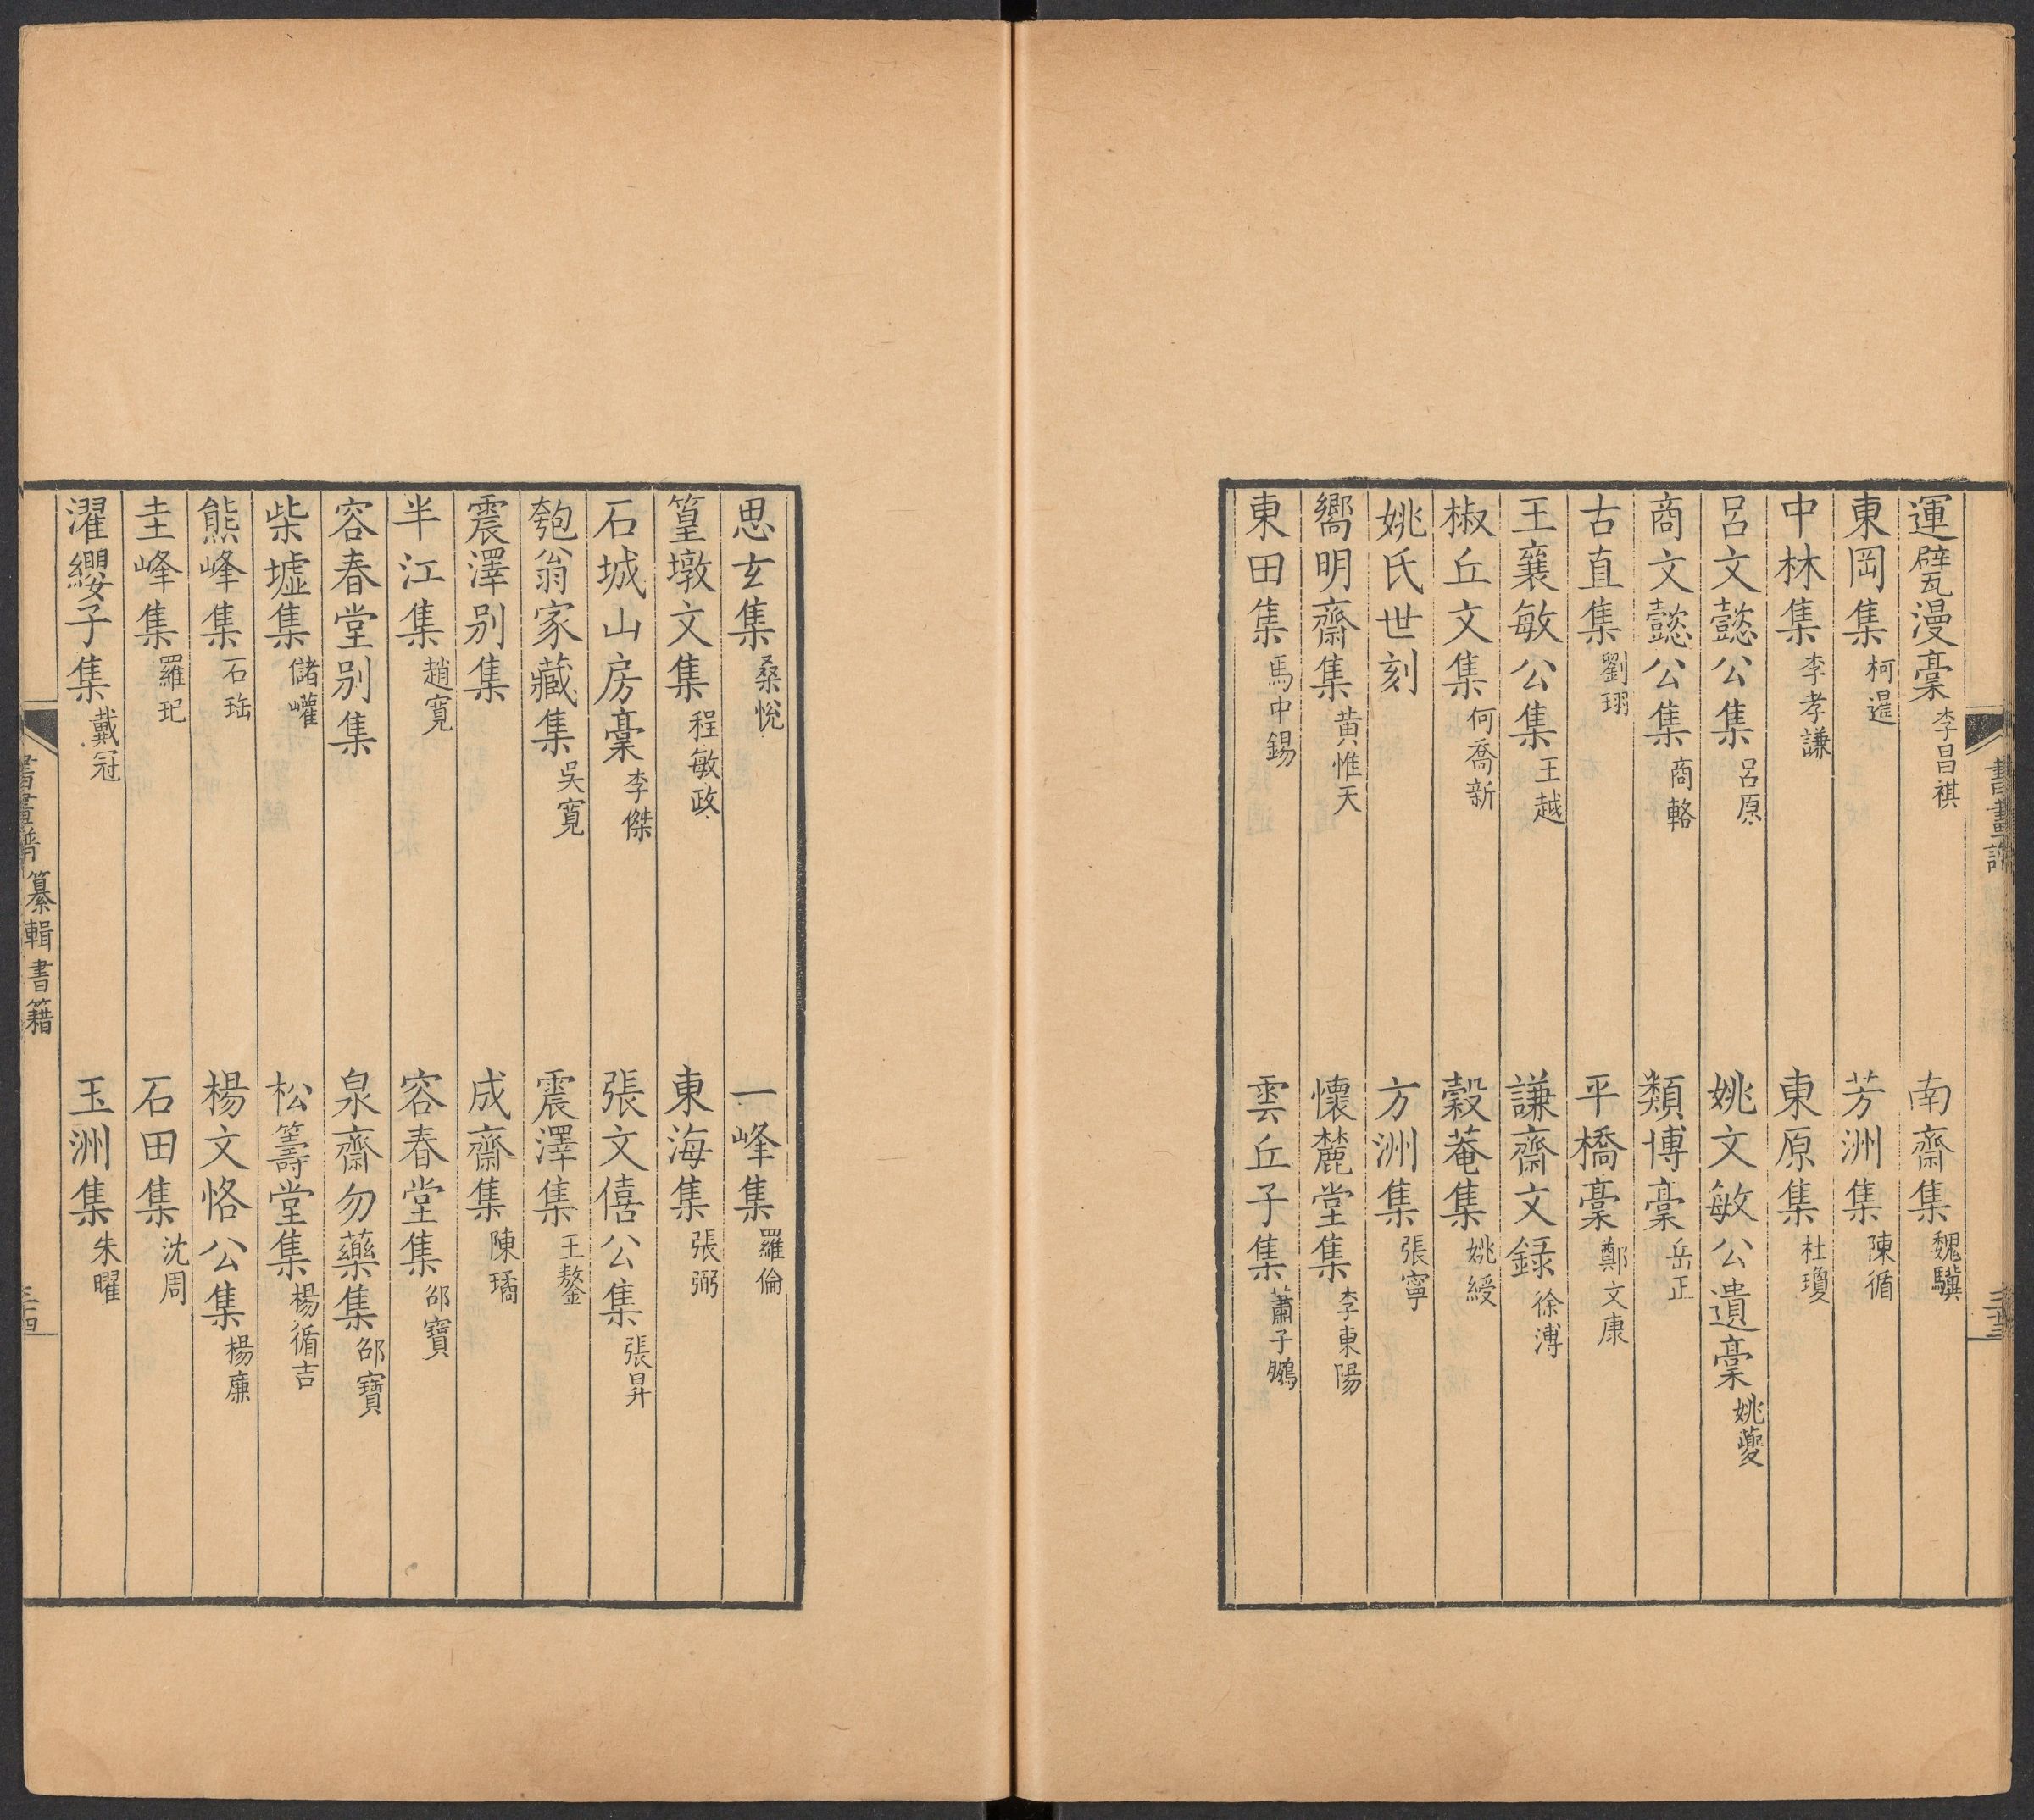 運甓漫稾 李昌祺 南齋集 魏驥
東岡集 柯暹 芳洲集 陳循
中林集 李孝謙 東原集 杜瓊
呂文懿公集 呂原 姚文敏公遺稾 姚夔
商文懿公集 商輅 類博稾 岳正
古直集 劉珝 平橋稾 鄭文康
王襄敏公集 王越 謙齋文録 徐溥
椒丘文集 何喬新 穀菴集 姚綬
姚氏世刻 方洲集 張寧
嚮明齋集 黄惟天 懷麓堂集 李東陽
東田集 馬中錫 雲丘子集 蕭子鵬
書畫譜
思玄集 桑悅 一峰集 羅倫
篁墩文集 程敏政 東海集 張弼
石城山房稾 李傑 張文僖公集 張昇
匏翁家藏集 吳寬 震澤集 王鏊
震澤别集 成齋集 陳璚
半江集 趙寬 容春堂集 邵寶
容春堂别集 泉齋勿藥集 邵寶
柴墟集 儲巏 松籌堂集 楊循吉
熊峰集 石珤 楊文恪公集 楊廉
圭峰集 羅玘 石田集 沈周
濯纓子集 戴冠 玉洲集 朱曜
書畫譜 纂輯書籍